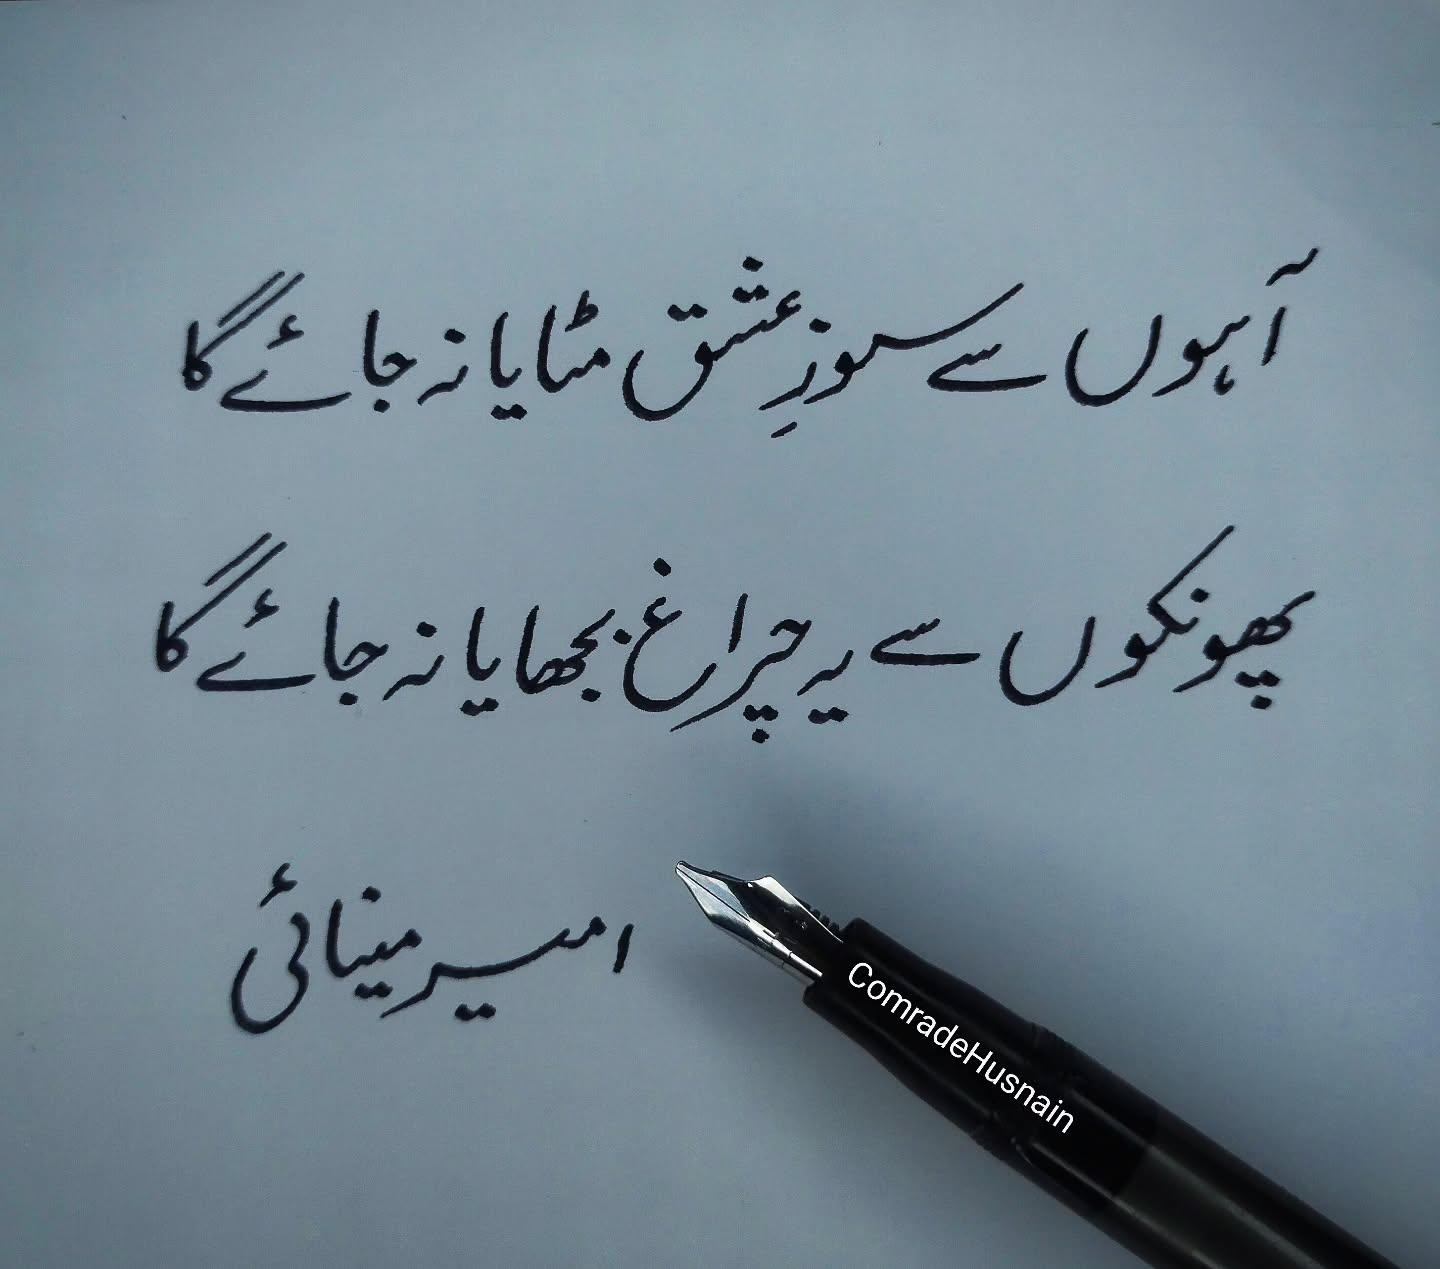 آہوں سے سوزِ عشق مٹایا نہ جائے گا
پھونکوں سے یہ چراغ بجھایا نہ جائے گا
امیر مینائی
ComradeHusnain